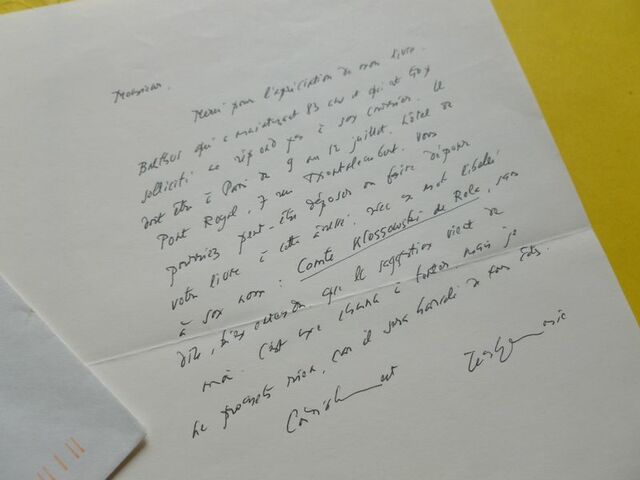 Monsieur,
Merci pour l'appréciation de mon livre.
Balthus qui a maintenant 83 ans et qui est trop
sollicité ne répond pas à son courrier. Il
doit être à Paris du 9 au 12 juillet. Hôtel du
Pont Royal, 7 rue Montalembert. Vous
pourriez peut-être déposer ou faire déposer
votre livre à cette adresse avec un mot libellé
à son nom : Comte Klossowski de Rola, sans
dire, bien entendu que la suggestion vient de
moi. C'est une chance à tenter mais je
ne promets rien, car il sera harcelé de tous côtés.
Cordialement